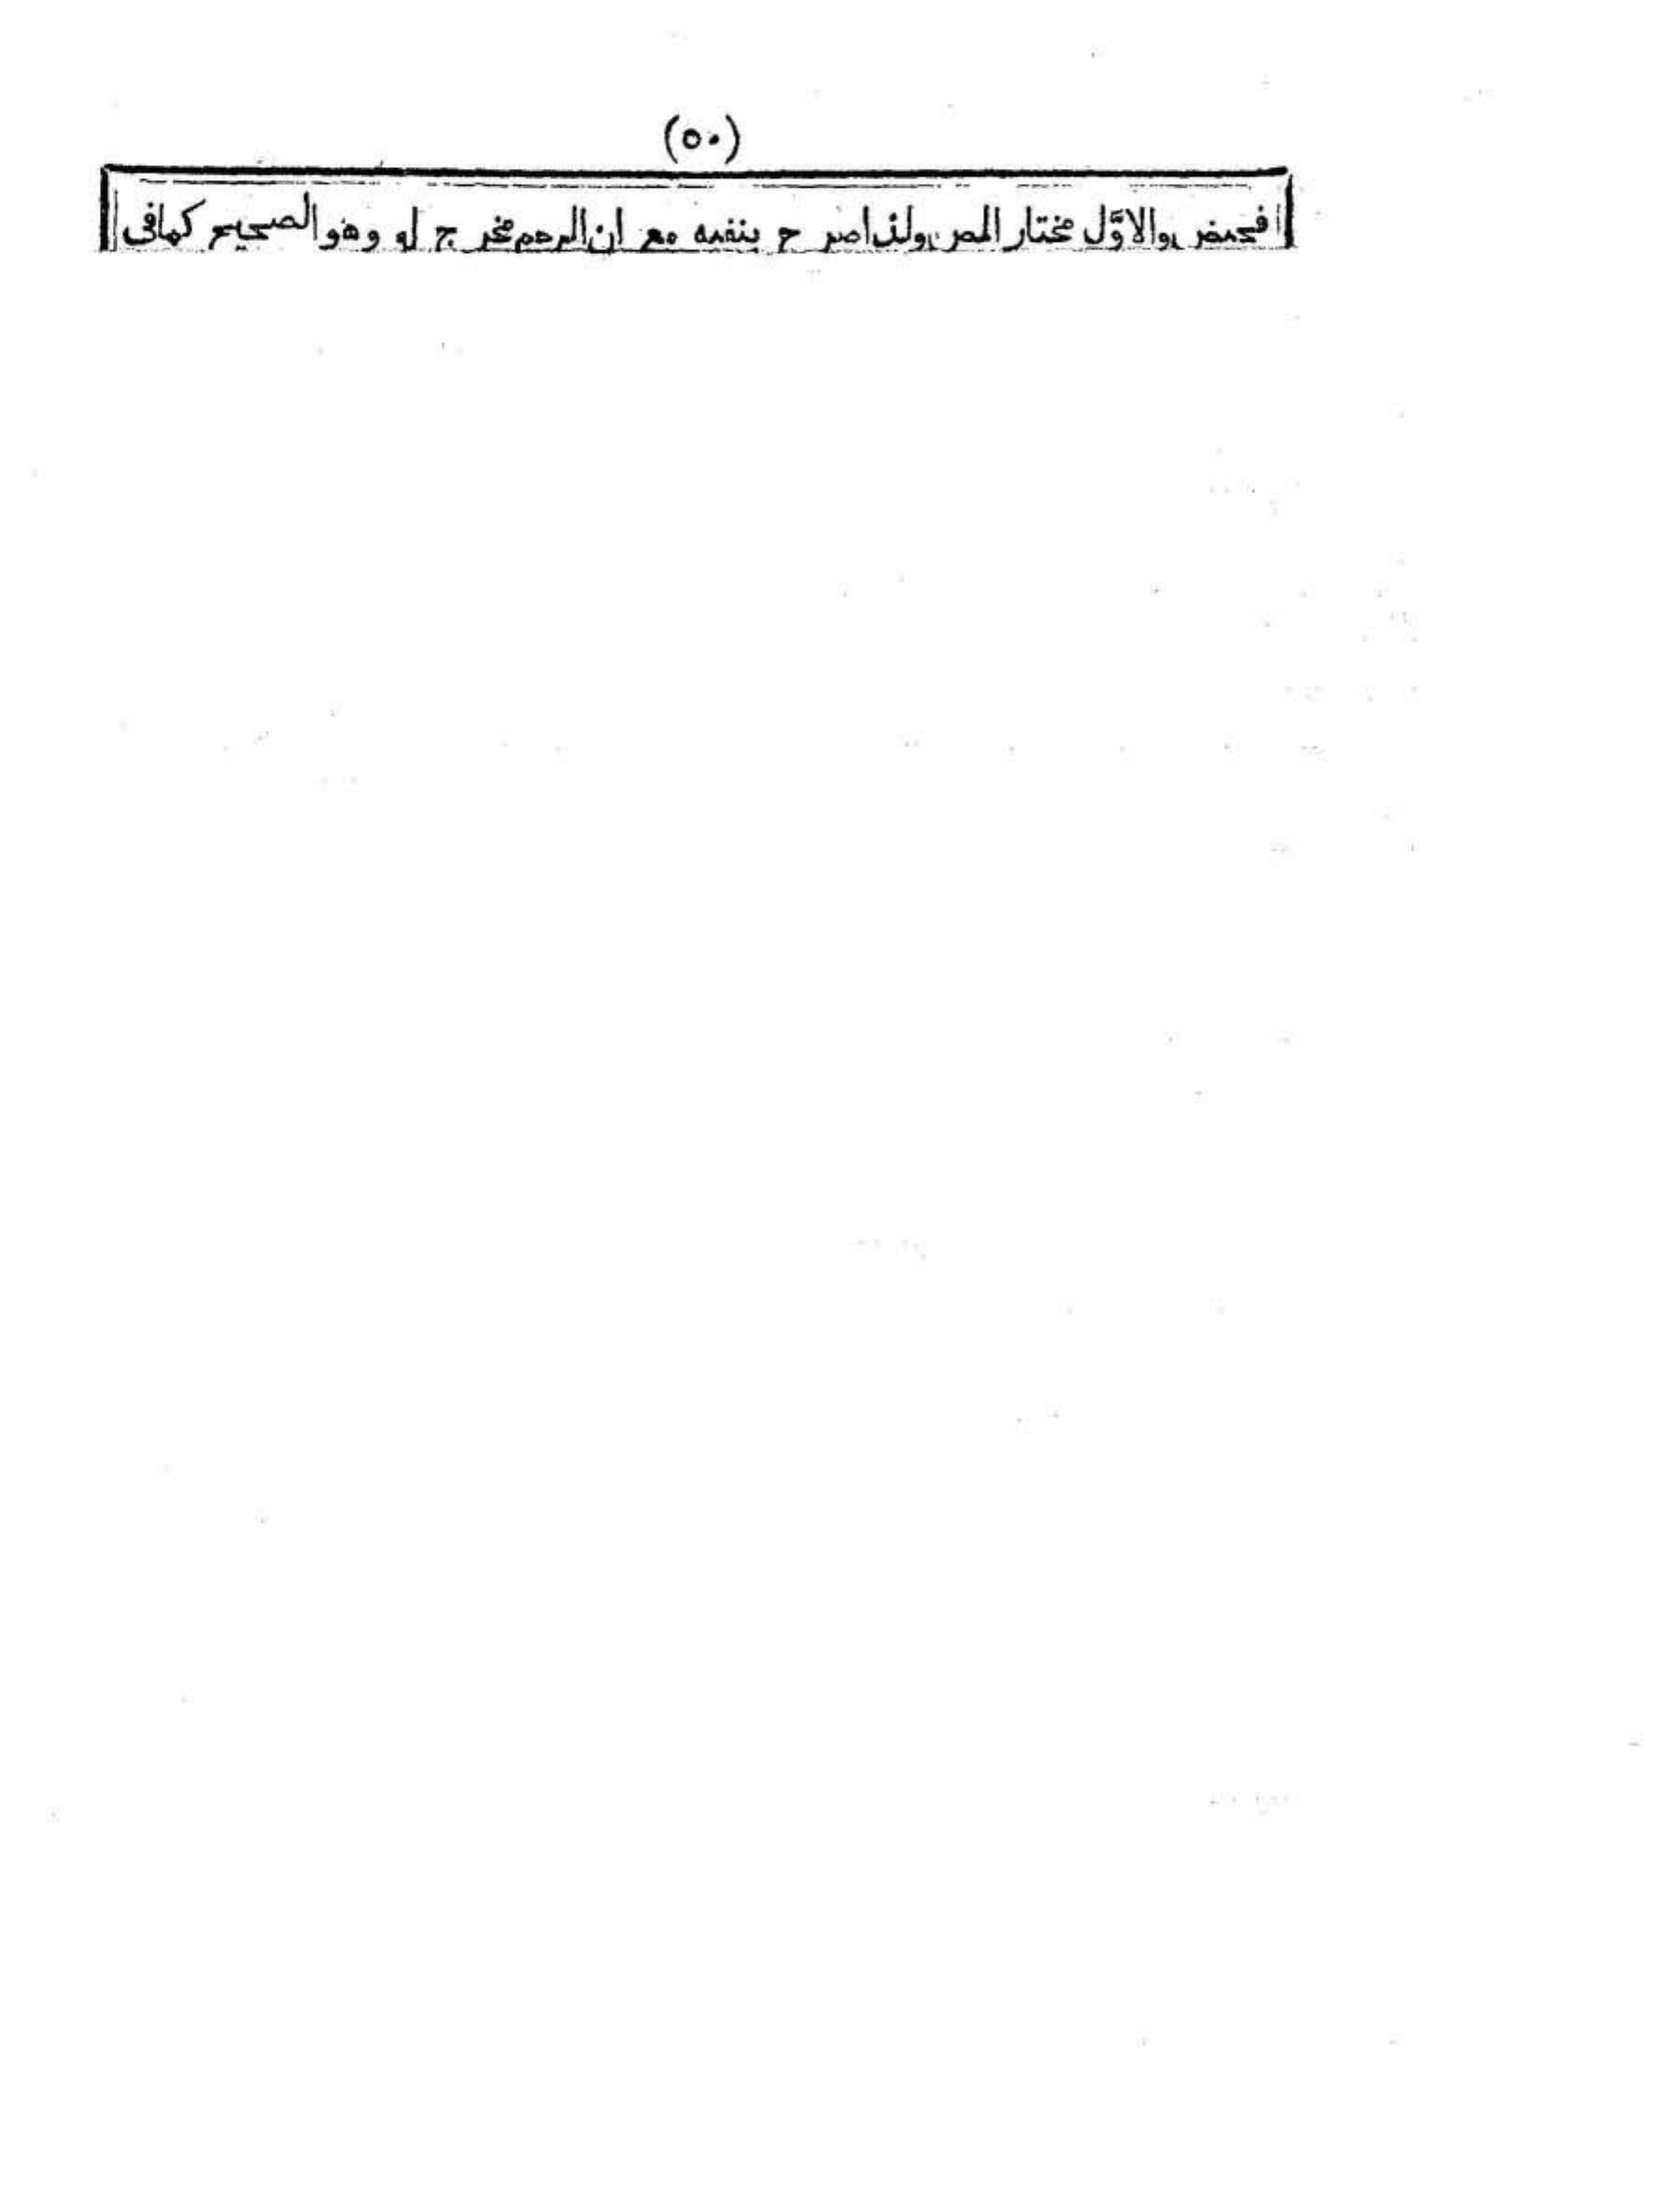 (٥٠)
فحيض والاوّل مختار المص ولذا صرح بنفيه مع ان الرحم مخرج له وهو الصحيح كمافى